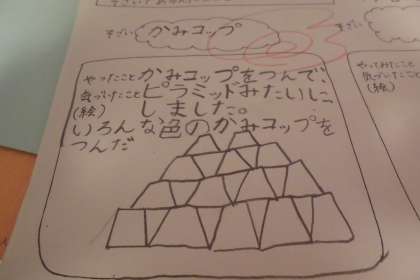 そざい かみコップ
そざい
やったこと かみコップをつんで、
気づいたこと ピラミッドみたいに
(絵) しました。
いろんな色のかみコップを
つんだ
やってみたこと
気づいたこと
(絵)